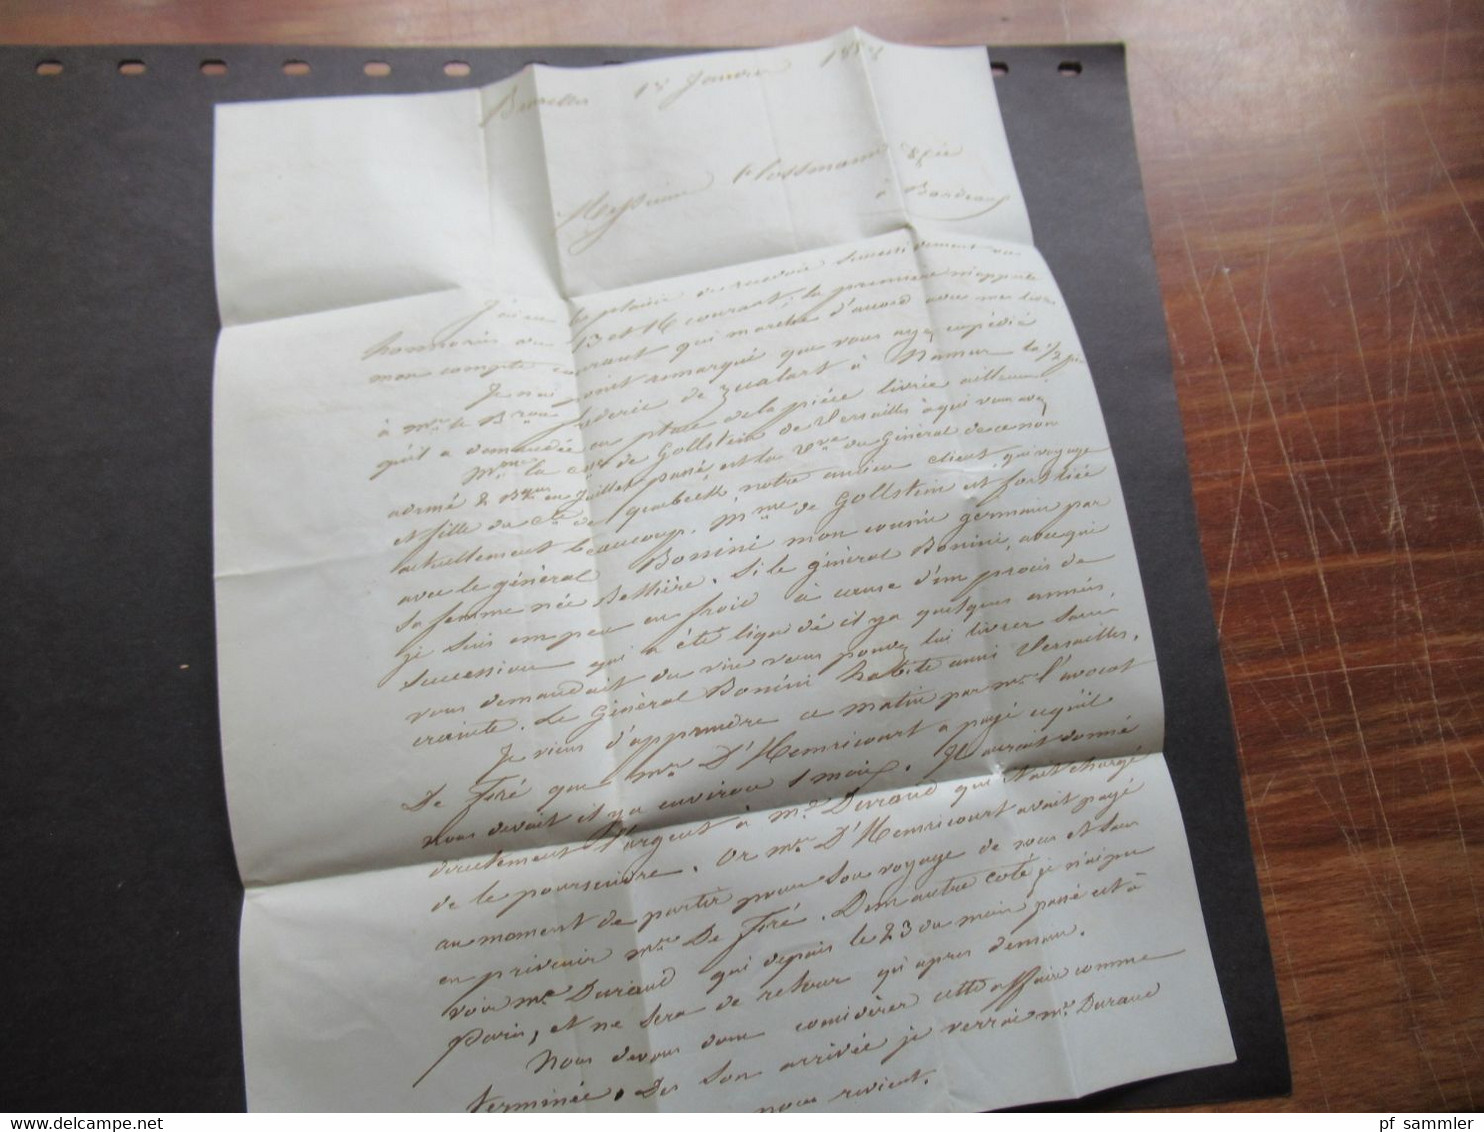 Bruxelles 18 Janvier 185
Messieurs Flossmann & Cie
à Bordeaux
J'ai eu le plaisir de recevoir successivement vos
honorées du 13 et 14 courant à la première m'apporte
mon compte courant qui marche d'accord avec mes livres
Je n'ai point remarqué que vous ayez expédié
à Mr le Bron de Zualart à Namur la 1/2 pce
qu'il a demandée en place de la pièce livrée ailleurs
Mme la Ctsse de Gollstein de Versailles à qui vous avez
2 en Juillet passé, est la Vve du Général de ce nom
et fille du Cte de notre ancien client qui voyage
actuellement beaucoup. Mme de Gollstein est fort liée
avec le général Bonnini mon cousin germain par
sa femme née Bethière. Si le général Bonini, avec qui
je suis un peu en froid à cause d'un procès de
succession qui a été liquidé il y a quelques années,
vous demandait du vin vous pouvez lui livrer sans
crainte. Le Général Bonini habite aussi Versailles.
Je viens d'apprendre ce matin par Mr l'avocat
De Foré que Mr D'Hemricourt a payé ce qu'il
nous devait il y a environ 1 mois. Il aurait donné
directement l'argent à Mr Durand qui était chargé
de le poursuivre. Or Mr D'Hemricourt avait payé
au moment de partir pour son voyage de noces et sans
en prévenir Mr De Foré. D'un autre coté je n'ai pu
voir Mr Durand qui depuis le 23 du mois passé est à
Paris, et ne sera de retour qu'après demain.
Nous devons donc considérer cette affaire comme
terminée. Dès son arrivée je verrai Mr Durand
nous revient.
pf_sammler